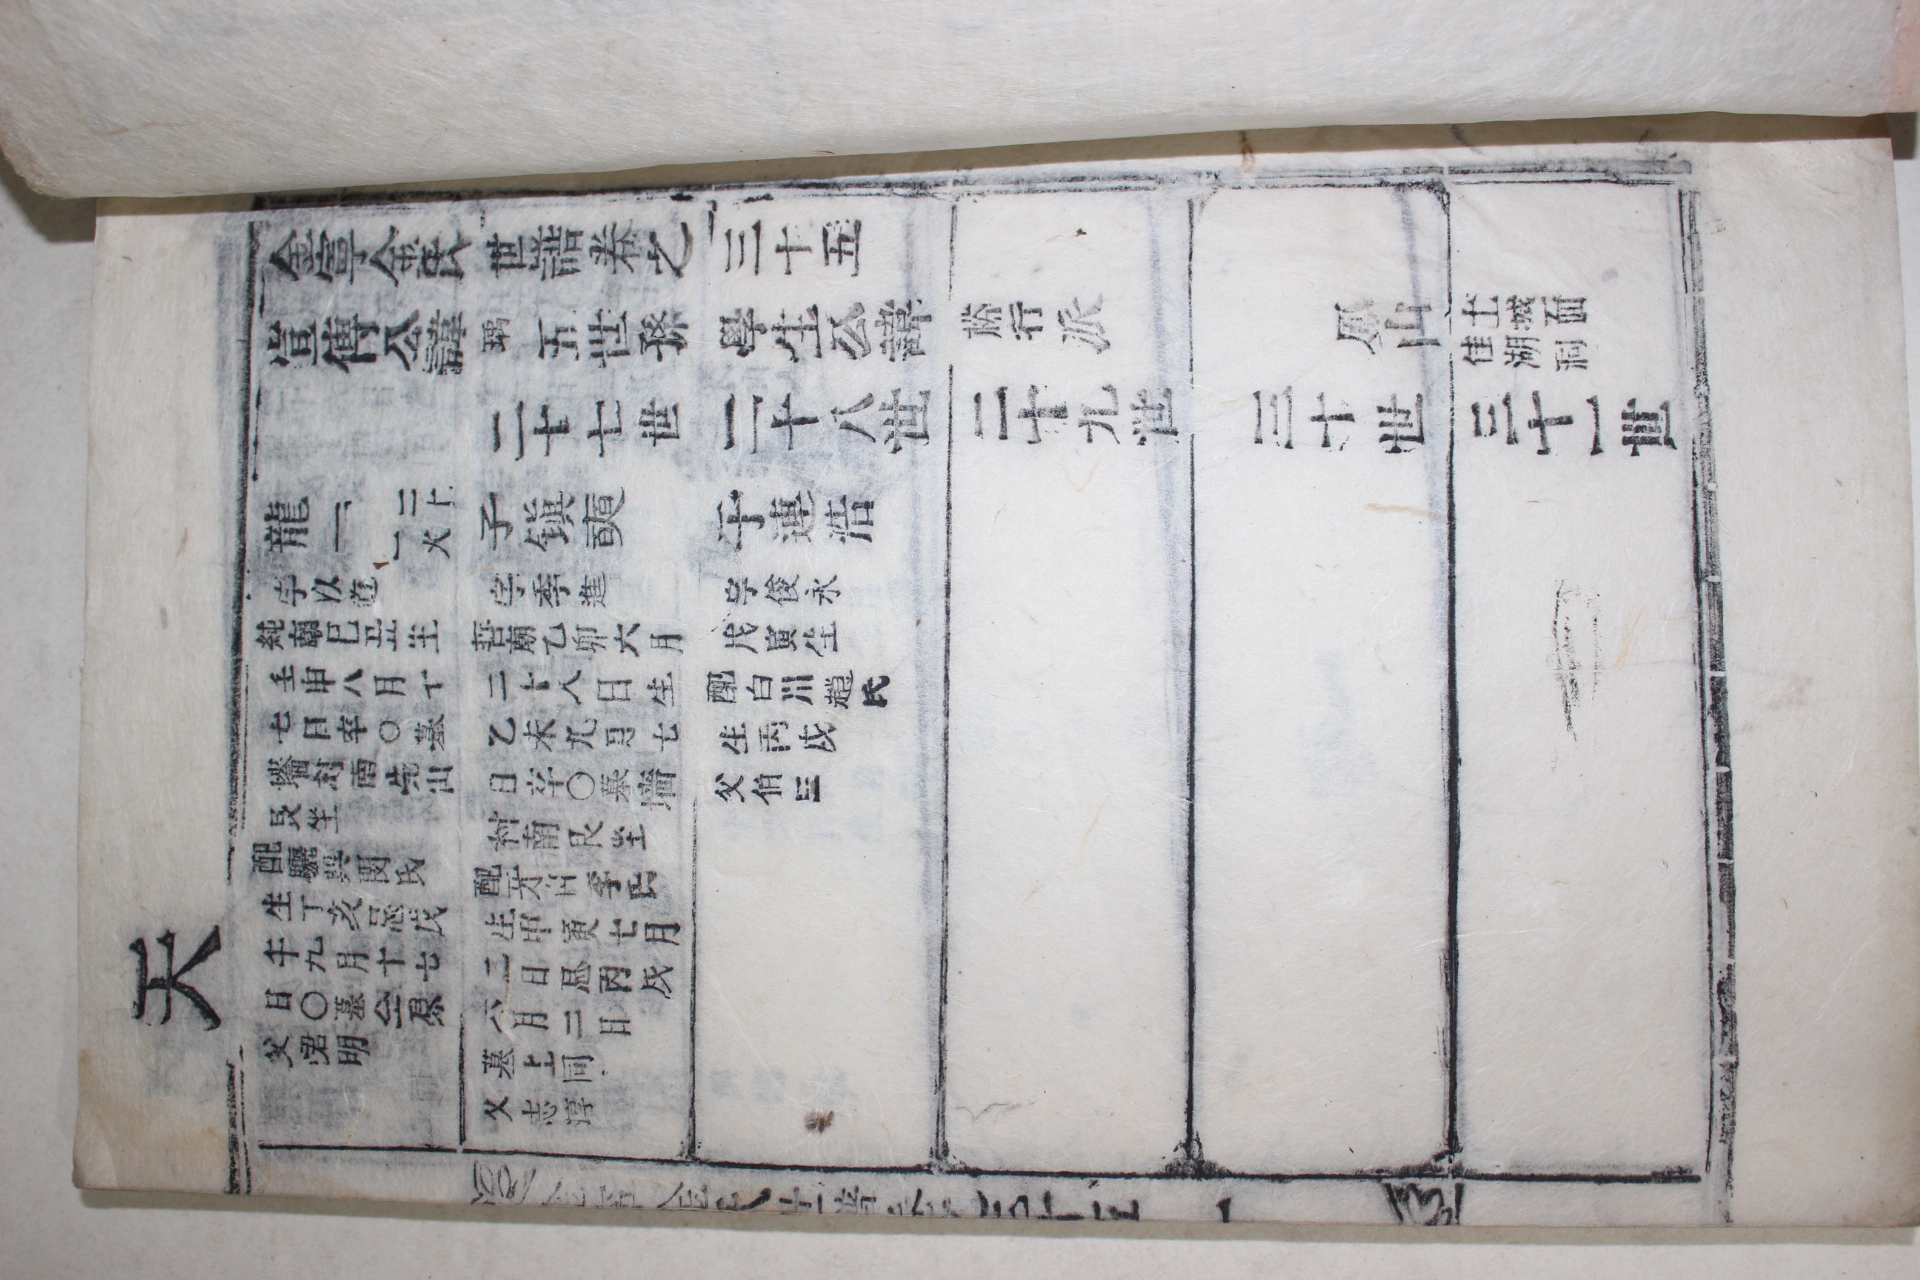 天
金寧金氏世譜卷之三十五
宣傳公諱瑀五世孫學生公諱勝行派 鳳山 土城面佳湖洞
二十七世 二十八世 二十九世 三十世 三十一世
龍一
字以道
純廟己丑生
壬申八月十
七日卒○墓
村酉 山
艮坐
配驪興閔氏
生丁亥忌戊
午九月十七
日○墓仝原
父君明
子鎭
字季進
哲廟乙卯六月
二十八日生
乙未九月七
日卒○墓
村南艮坐
配 李氏
生甲寅七月
二日忌丙戌
六月二日
墓上同
父志淳
子連浩
字俊永
戊寅生
配白川趙氏
生丙戌
父伯三
金寧金氏世譜卷三十五 一